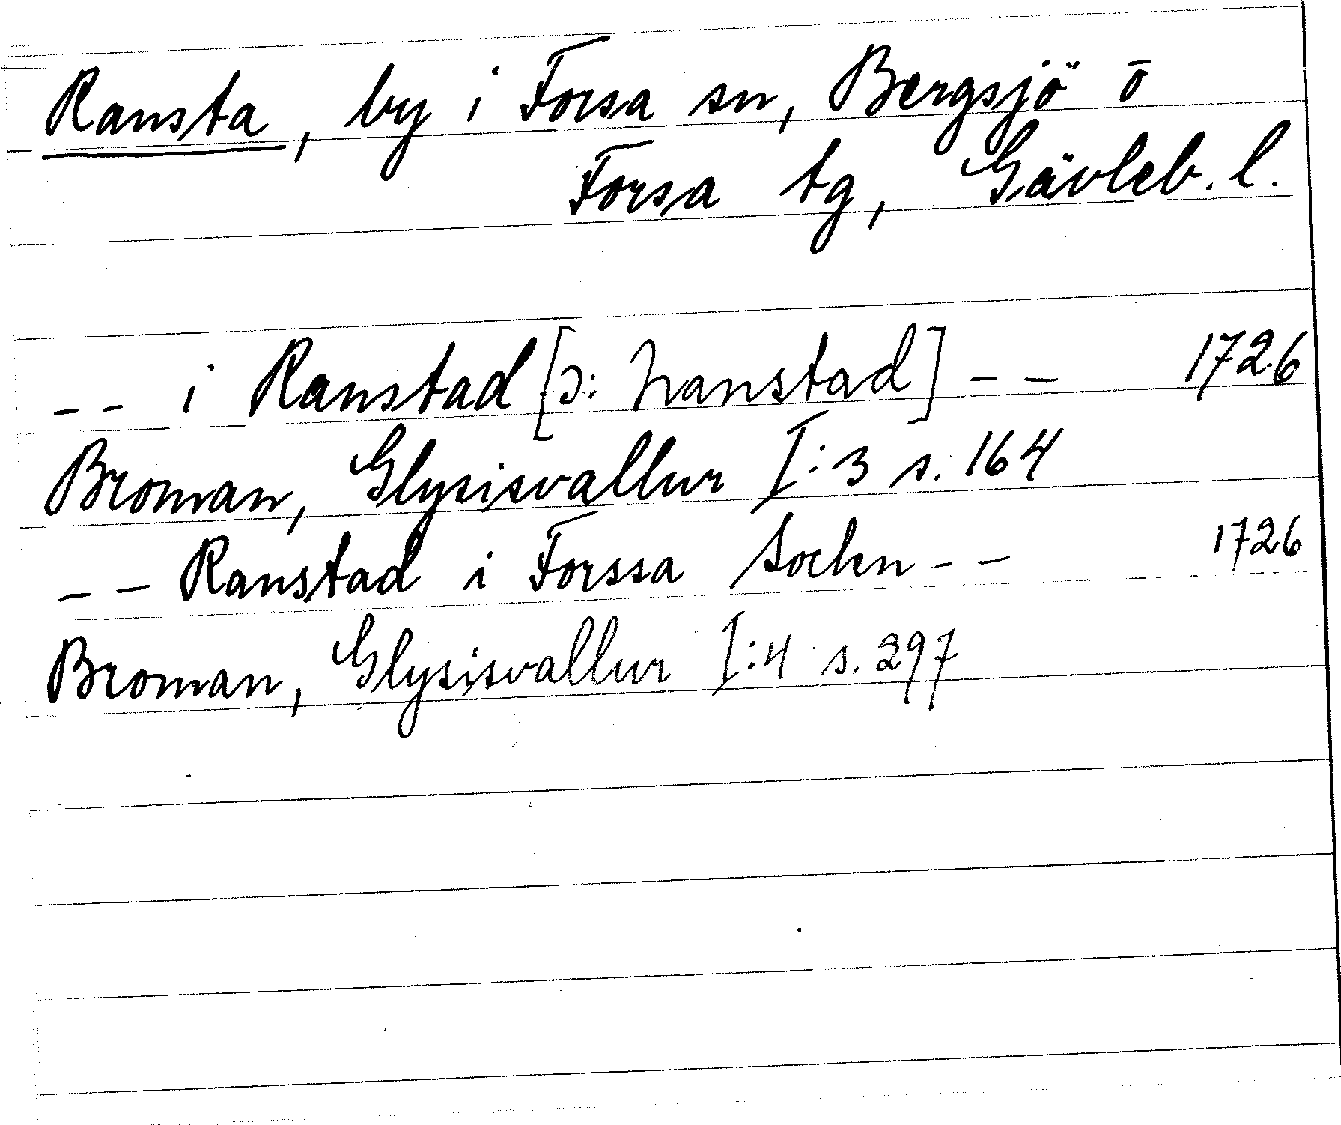 Ransta, by i Forsa sn, Bergsjö o
Forsa tg, Gävleb. l.
-- i Ranstad [ɔ: hanstad] -- 1726
Broman, Glysisvallur I:3 s. 164
-- Ranstad i Forssa Sochn -- 1726
Broman, Glysisvallur I:4 s. 297